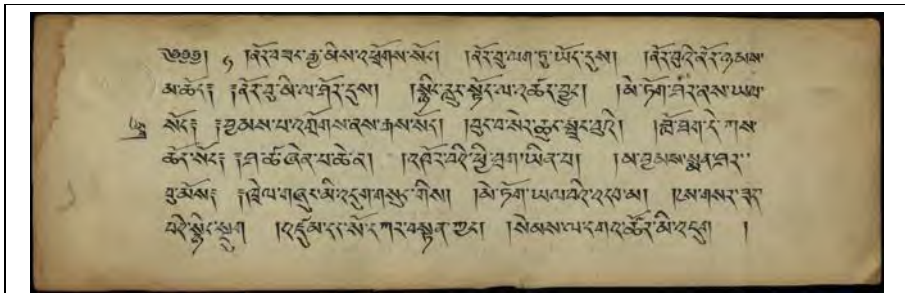 ༄༅༅། ། །ནོར་བཟང་རྒྱ་མིས་འཕྲོགས་སོང། །ནོར་བུ་ལག་ཏུ་ཡོད་དུས། །ནོར་བུའི་ནོར་ཉམས་
མ་ཆོད༔ ༔ནོར་བུ་མི་ལ་ཤོར་དུས། །སྙིང་རླུང་སྟོད་ལ་འཚོར་བྱུང། །མེ་ཏོག་ཤར་ནས་ཡལ་
སོང༔ ༔བྱམས་པ་འགྲོགས་ནས་རྒས་སོང། །བུང་བ་སེར་ཆུང་སྦྲང་བུའི། །ཁོ་ཐག་དེ་ཀས་
ཆོད་སོང༔ ༔ཤ་ཚ་ཞེན་པ་ཆེ་ན། །འཁོར་བའི་ཕྱི་བྲག་ཡིན་པ། །མ་བྱམས་སྨན་ཤར་
བུ་མོས༔ ༔ཁྲེལ་གཞུང་མི་འདུག་གསུང་གིས། །མེ་ཏོག་ཡལ་བའི་འདབ་མ། །ངམ་གསར་ཟད་
བའི་སྙིང་སྡུག །འཛུམ་དང་སོ་དཀར་བསྟན་ཀྱང། །སེམས་ལ་དགའ་ཚོར་མི་འདུག །